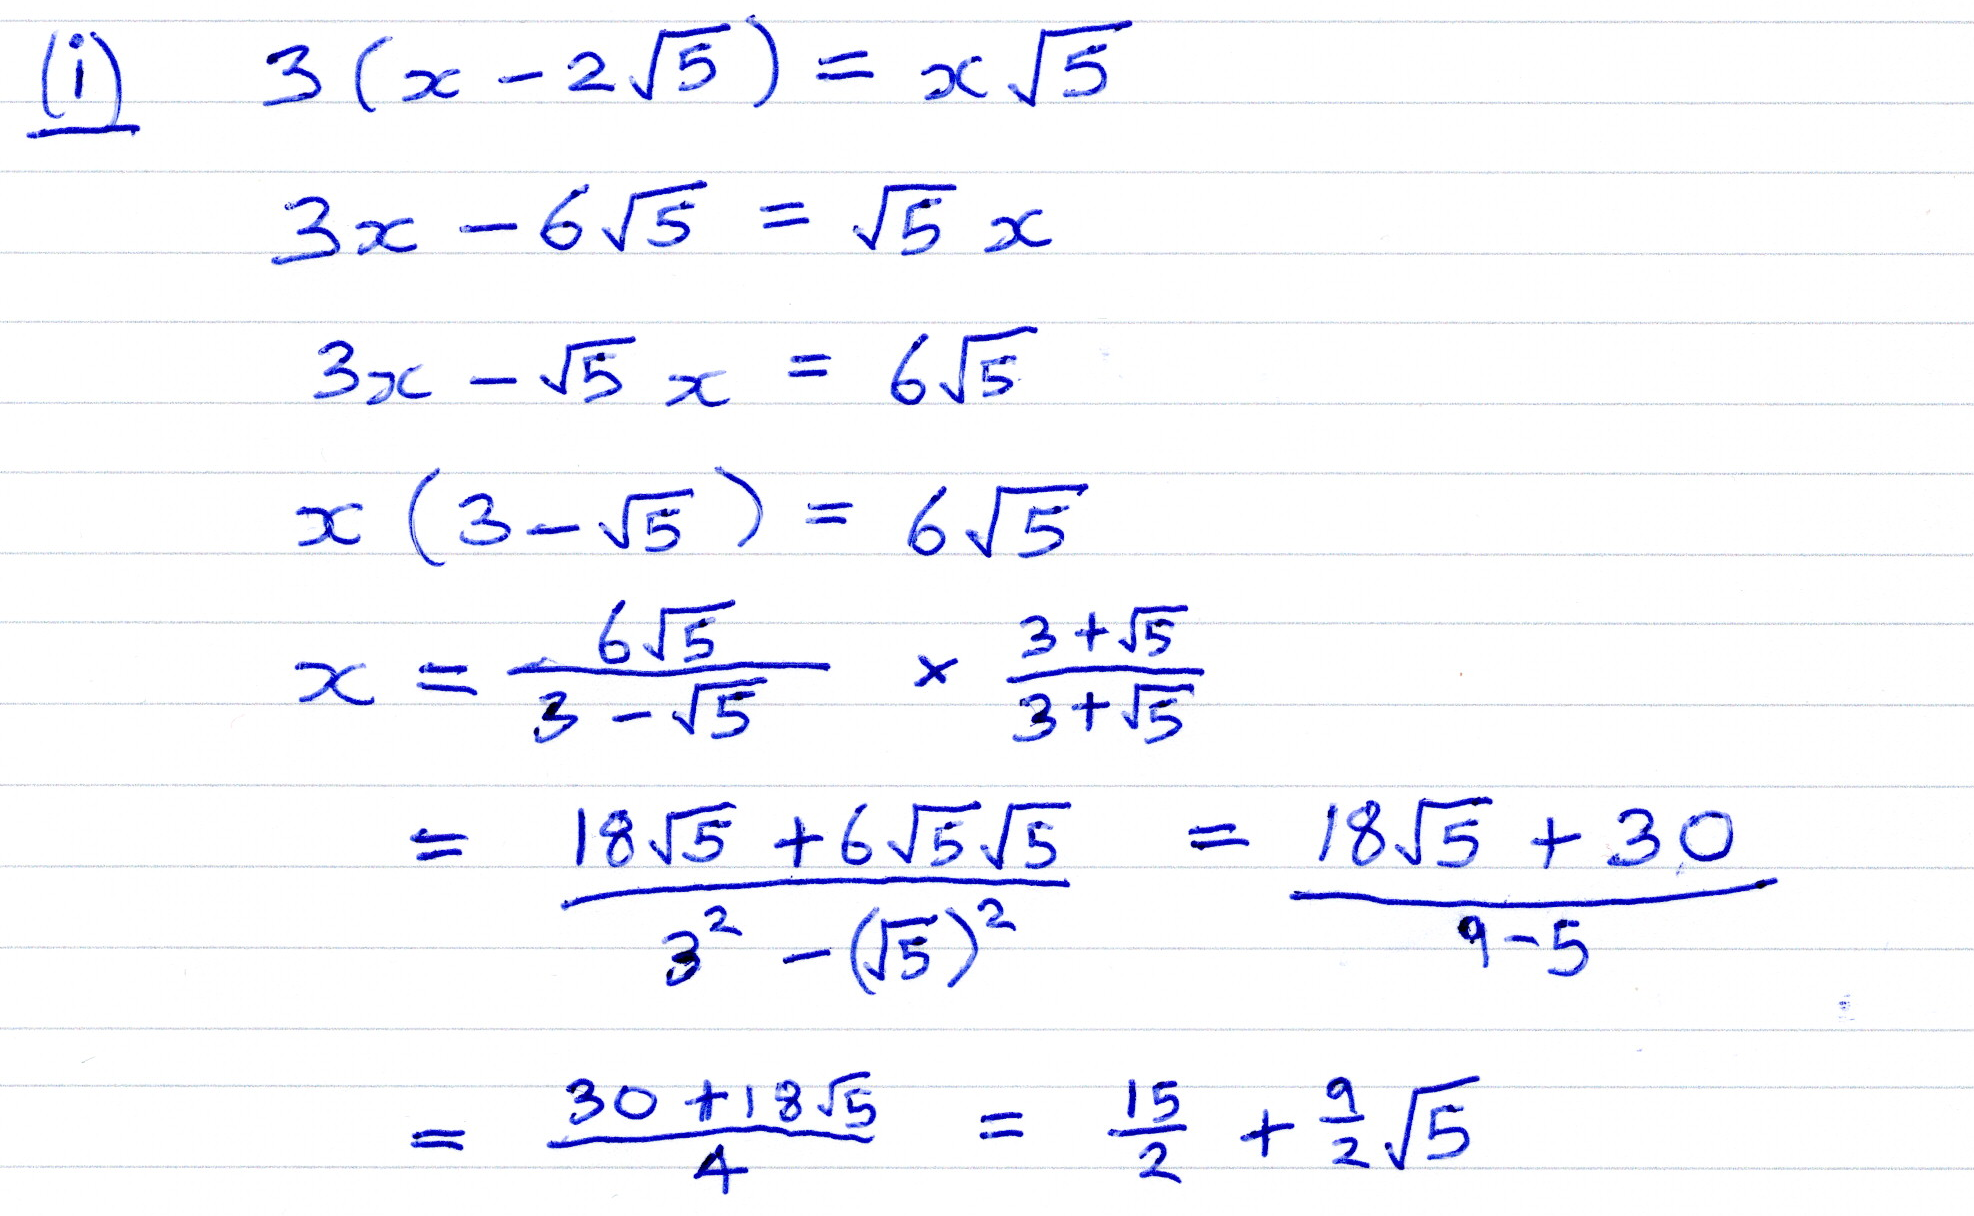 (i) 3(x - 2√5) = x√5
3x - 6√5 = √5 x
3x - √5 x = 6√5
x(3 - √5) = 6√5
x = 6√5/(3 - √5) × (3 + √5)/(3 + √5)
= (18√5 + 6√5√5)/(3² - (√5)²) = (18√5 + 30)/(9 - 5)
= (30 + 18√5)/4 = 15/2 + 9/2 √5